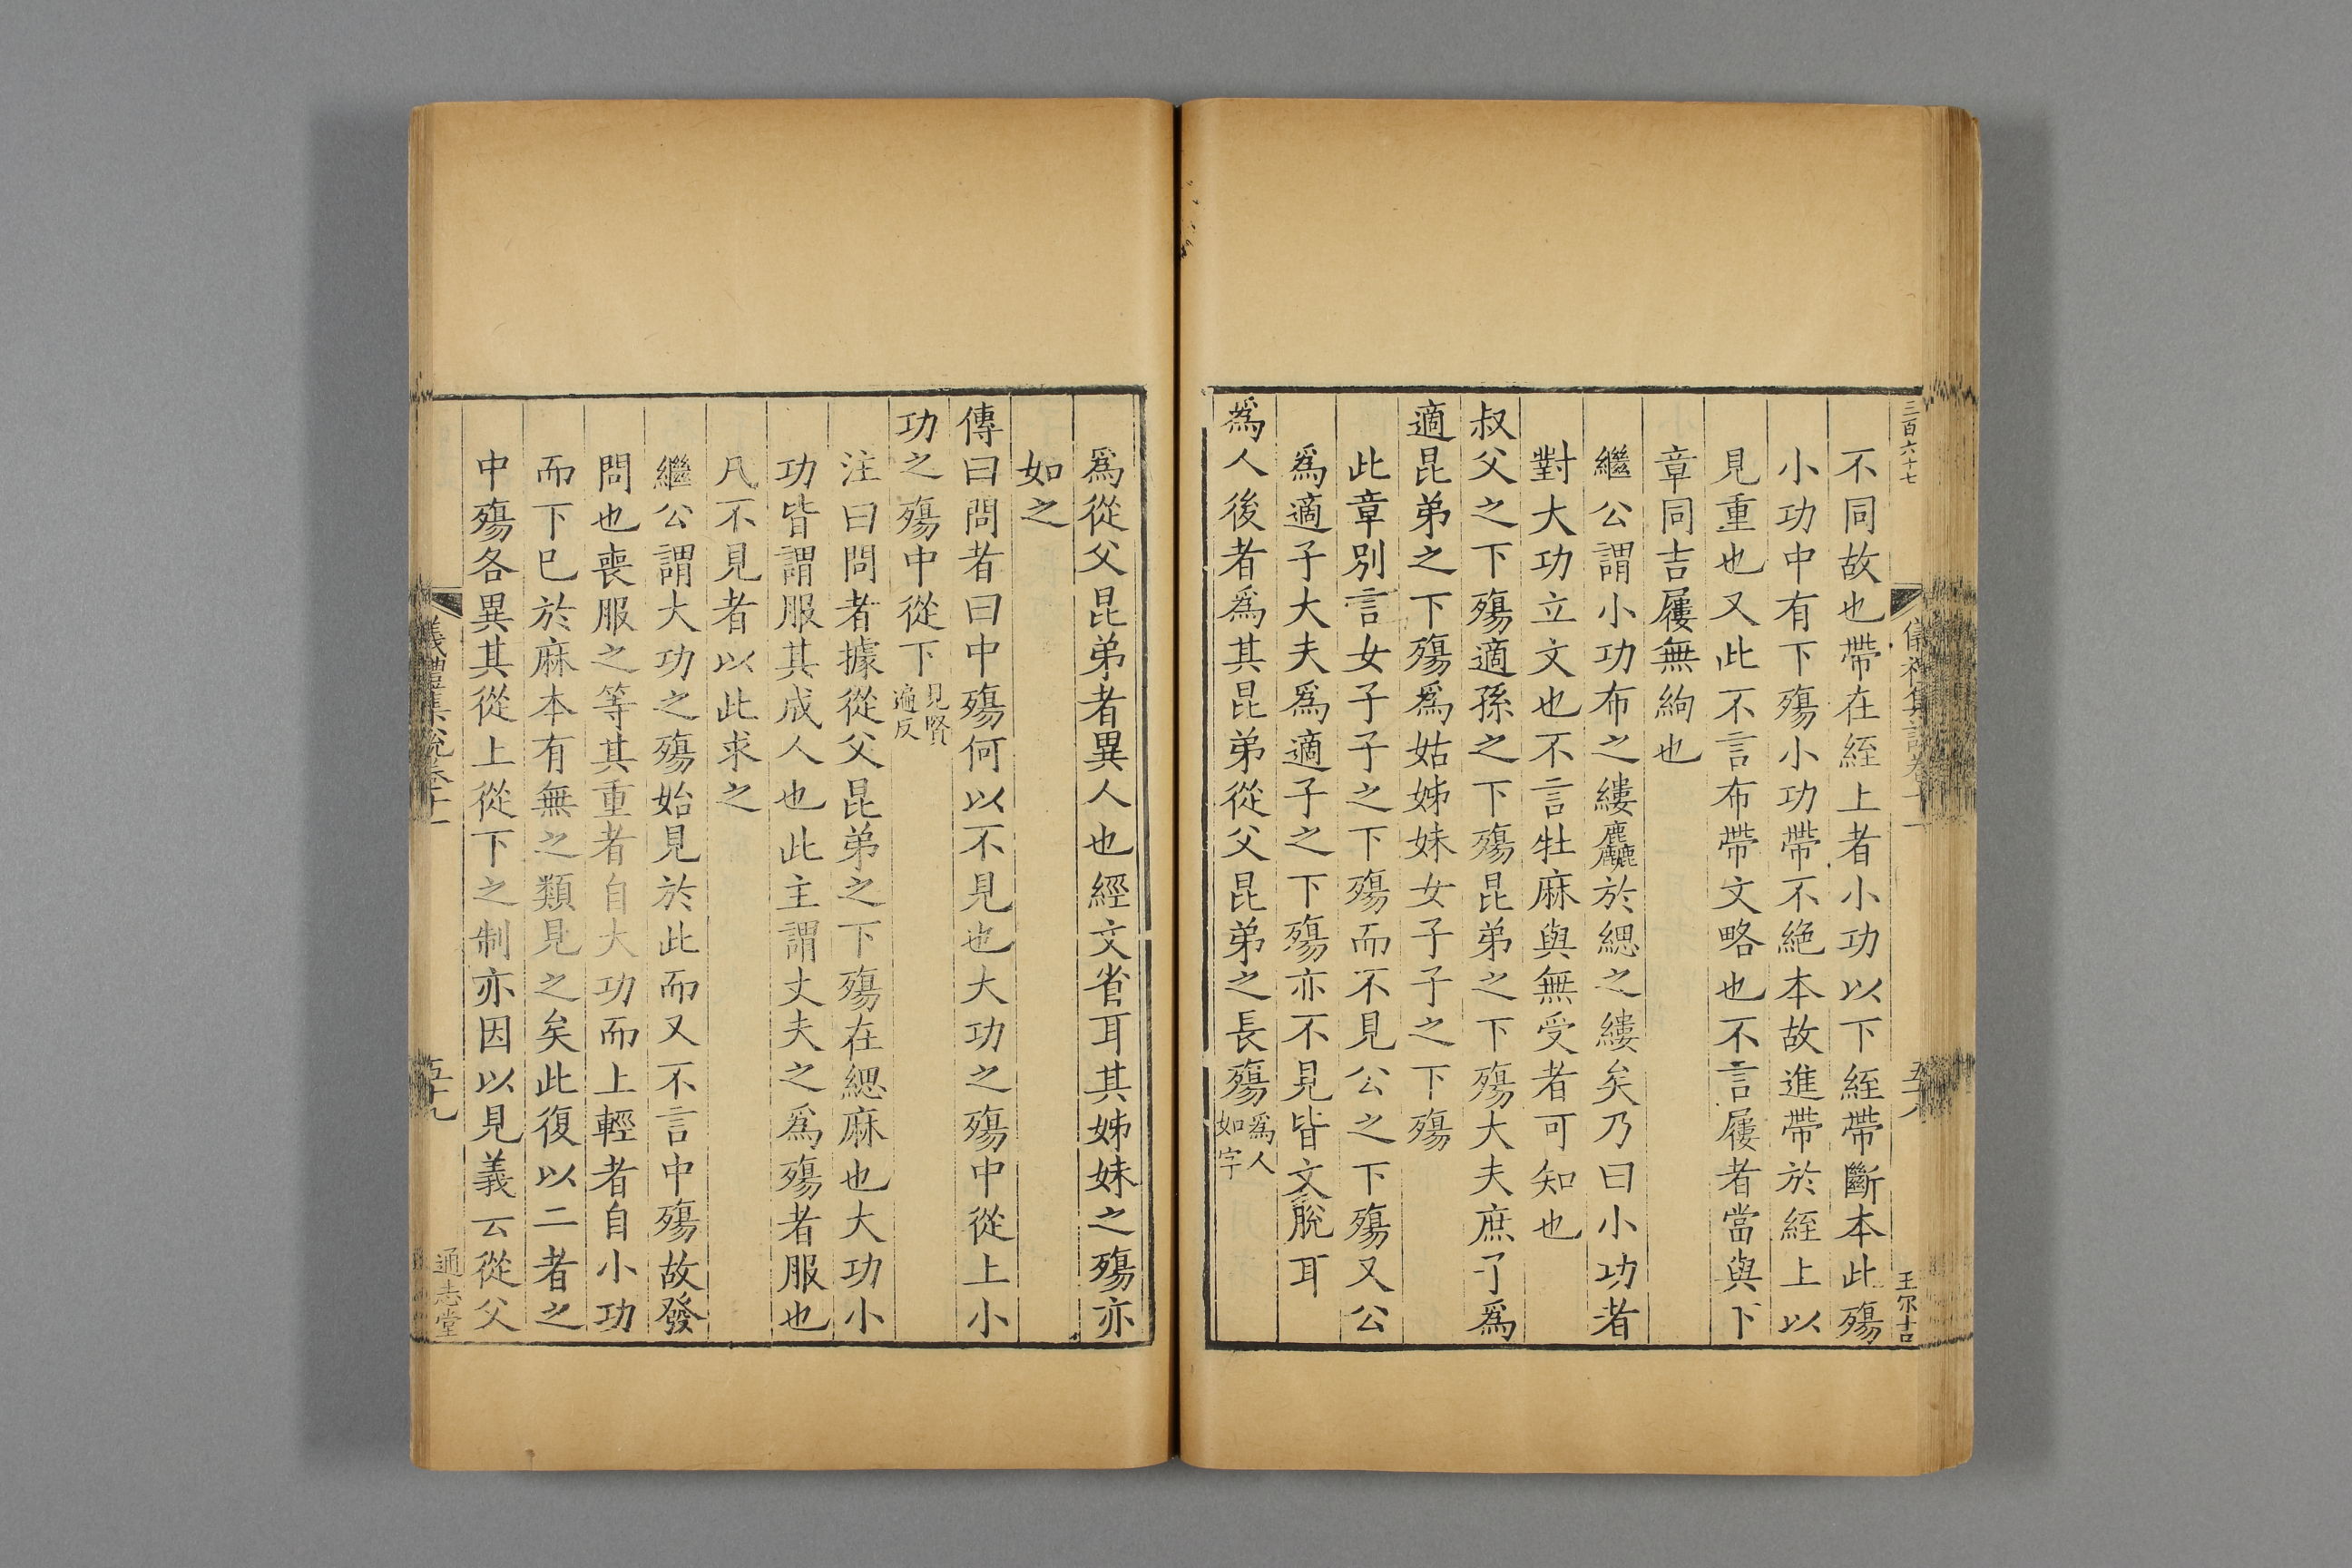 三百六十七
王尔吉
不同故也帶在絰上者小功以下絰帶斷本此殤
小功中有下殤小功帶不絶本故進帶於絰上以
見重也又此不言布帶文略也不言屨者當與下
章同吉屨無絇也
繼公謂小功布之縷麤於緦之縷矣乃曰小功者
對大功立文也不言牡麻與無受者可知也
叔父之下殤適孫之下殤昆弟之下殤大夫庶子爲
適昆弟之下殤爲姑姊妹女子子之下殤
此章別言女子子之下殤而不見公之下殤又公
爲適子大夫爲適子之下殤亦不見皆文脫耳
爲人後者爲其昆弟從父昆弟之長殤爲人如字
爲從父昆弟者異人也經文省耳其姊妹之殤亦
如之
傳曰問者曰中殤何以不見也大功之殤中從上小
功之殤中從下見賢遍反
注曰問者據從父昆弟之下殤在緦麻也大功小
功皆謂服其成人也此主謂丈夫之爲殤者服也
凡不見者以此求之
繼公謂大功之殤始見於此而又不言中殤故發
問也喪服之等其重者自大功而上輕者自小功
而下巳於麻本有無之類見之矣此復以二者之
中殤各異其從上從下之制亦因以見義云從父
儀禮集說卷十一
五十九
通志堂